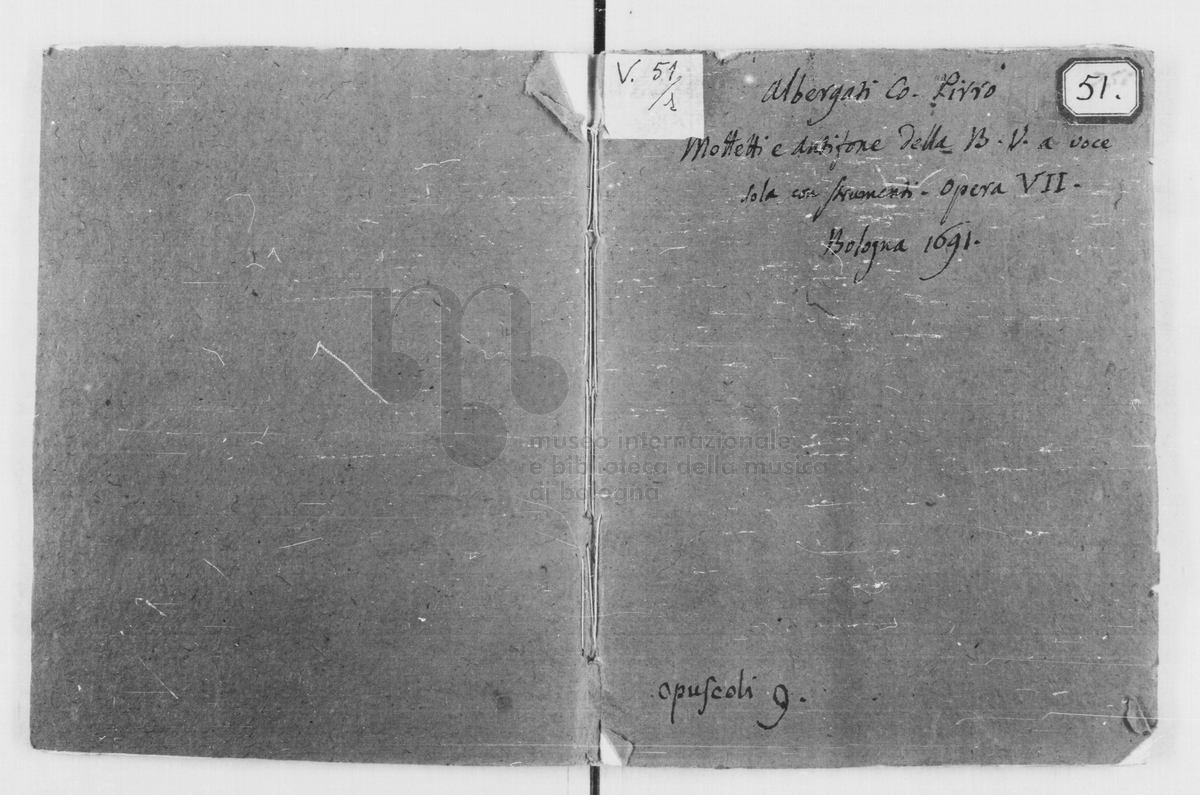 V. 51/1
Albergati Co. Pirro
51.
Mottetti e Antifone della B. V. a voce
sola con strumenti. Opera VII.
Bologna 1691.
museo internazionale
e biblioteca della musica
di bologna
opuscoli 9.